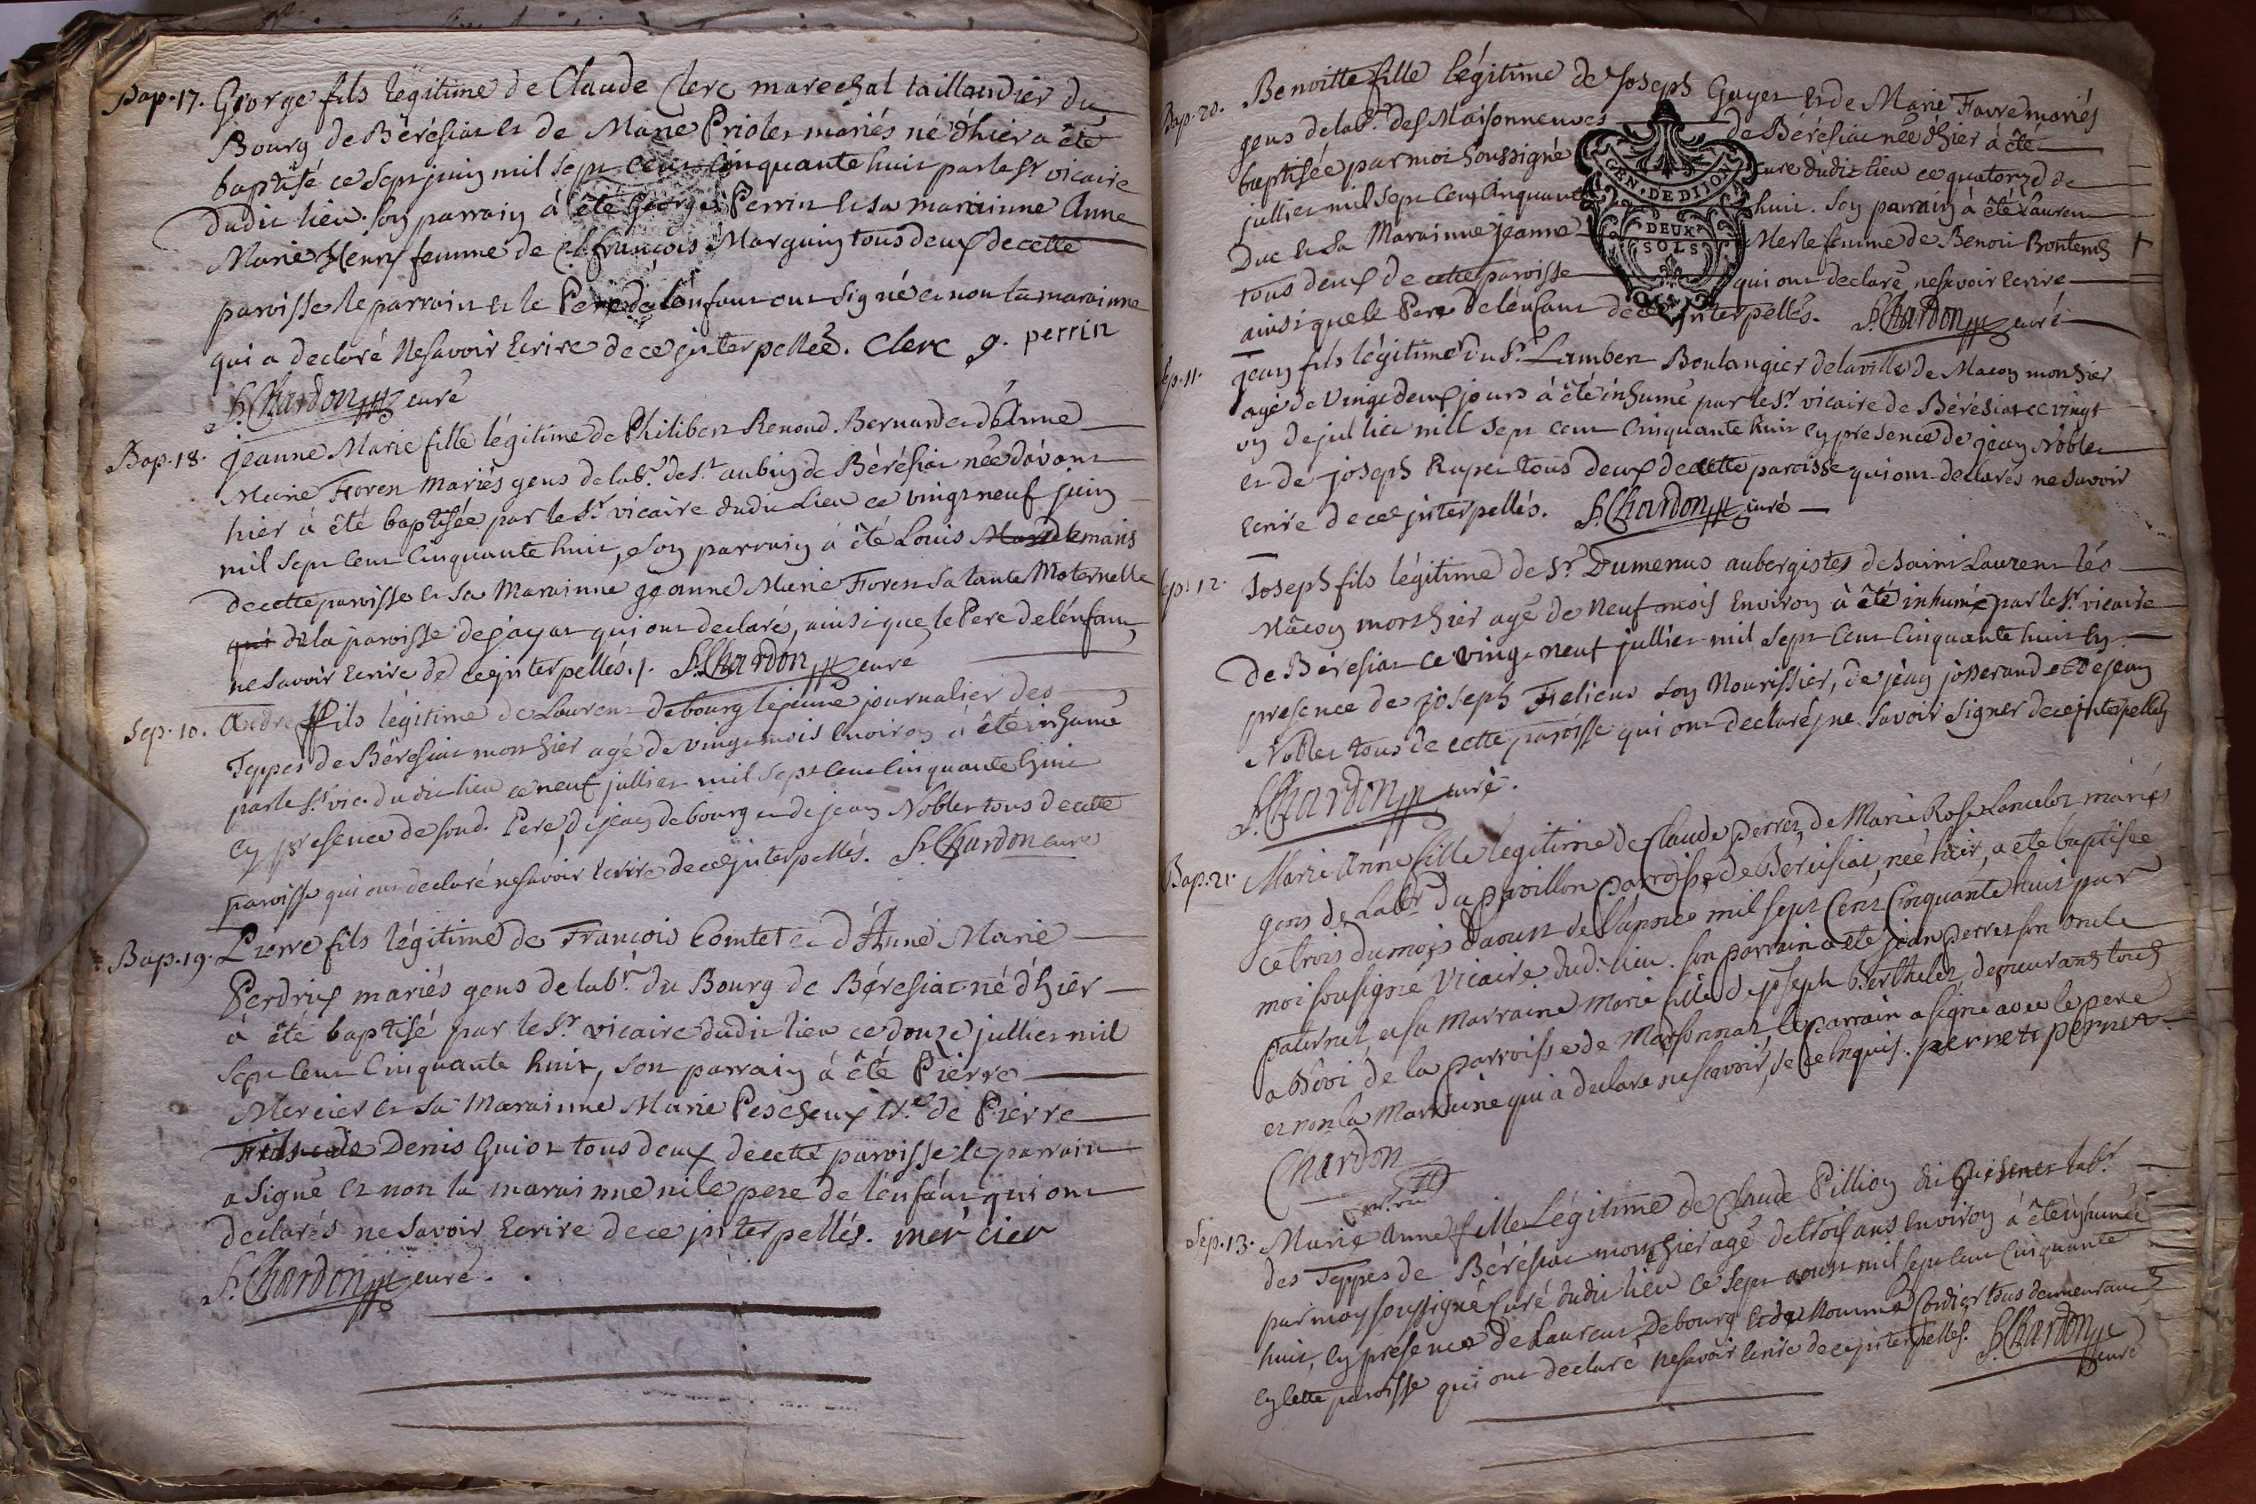 Bap. 17. George fils légitime de Claude Clerc marechal taillandier du
Bourg de Bérésiat et de Marie Priolet mariés né d'hier a été
baptisé ce sept juin mil sept cent cinquante huit par le Sr vicaire
dudit lieu. son parrain à été George Perrin et sa marainne Anne
Marie Henry femme de Cl. françois Marguin tous deux de cette
paroisse le parrain et le Pere de l'enfant ont signé et non la marainne
qui a declaré ne savoir Ecrire de ce interpellée. Clerc g. perrin
Chardon curé
Bap. 18. jeanne Marie fille légitime de Philibert Renoud Bernard et d'Anne
Marie Floret Mariés gens de labr. de St. aubin de Bérésiat née d'avant
hier à été baptisée par le Sr vicaire dudit Lieu ce vingt neuf juin
mil sept cent cinquante huit, son parrain à été Louis
de cette paroisse et sa Marainne jeanne Marie Floret sa tante Maternelle
qui de la paroisse de jayat qui ont declarés, ainsi que le Pere de l'enfant,
ne savoir Ecrire de ce interpellés. /. Chardon curé
Sep. 10. André fils légitime de Laurent debourg lejeune journalier des
Teppes de Bérésiat mort hier agé de vingt mois Environ à été inhumé
par le Sr. vic. dudit lieu ce neuf jullier mil sept cent cinquante huit
en presence de sond. Pere, de jean debourg et de jean Noblet tous de cette
paroisse qui ont declaré ne savoir Ecrire de ce interpellés. Chardon curé
Bap. 19. Pierre fils légitime de François Comtet et d'Anne Marie
Perdrix mariés gens de labr. du Bourg de Bérésiat né d'hier
à été baptisé par le Sr vicaire dudit lieu ce douze jullier mil
sept cent Cinquante huit, son parrain à été Pierre
Mercier et sa Marainne Marie Pescheux Ve. de Pierre
Denis Guiot tous deux de cette paroisse le parrain
a signé et non la marainne ni le pere de l'enfant qui ont
declarés ne savoir Ecrire de ce interpellés. mercier
Chardon curé.
Bap. 20. Benoitte fille légitime de Joseph Guyet et de Marie Favre mariés
gens de labr. des Maisonneuves de Bérésiat née d'hier à été
baptisée par moi soussigné curé dudit lieu ce quatorze de
jullier mil sept cent cinquante huit. son parrain à été Laurent
Duc et sa Marainne jeanne Merle femme de Benoit Bontems
tous deux de cette paroisse qui ont declaré ne savoir Ecrire
ainsi que le Pere de l'enfant de ce interpellés. Chardon curé
GEN. DE DIJON
DEUX
SOLS
Sep. 11. jean fils légitime du Sr. Lambert Boulangier de la ville de Macon mort hier
agé de vingt deux jours à été inhumé par le Sr. vicaire de Bérésiat ce vingt
un de jullier mil sept cent Cinquante huit en presence de jean Noblet
et de joseph Ruyet tous deux de cette paroisse qui ont declarés ne savoir
Ecrire de ce interpellés. Chardon curé
Sep. 12. Joseph fils légitime de Sr. Dumenus aubergistes de Saint Laurent lés
Mâcon mort hier agé de Neuf mois Environ à été inhumé par le Sr. vicaire
de Bérésiat ce vingt neuf jullier mil sept cent cinquante huit en
presence de joseph Felieus son Nourissier, de jean josserand et de jean
Noblet tous de cette paroisse qui ont declaré ne savoir signer de ce interpellés
Chardon curé.
Bap. 21. Marie Anne fille legitime de Claude perret, de Marie Rose Lancelot mariés
gens de Labr. du pavillon parroisse de Bereisiat, née hier, a ete baptisée
ce trois du mois d'aoust de l'année mil sept cent cinquante huit par
moi sousigné Vicaire dud. lieu. son parrain a eté jean perret son oncle
paternel et sa Marraine Marie fille de joseph Berthelet, demeurans tous
a Bévi de la parroisse de Marsonnat, le parrain a signé avec le pere
et non la Marraine qui a declaré ne scavoir, de ce enquis. perret perret
Chardon
Sep. 13. Marie Anne fille Légitime de Claude Pillion dit labr.
des Teppes de Bérésiat mort hier agé de trois ans Environ à été inhumée
par moy soussigné Curé dudit lieu ce sept aoust mil sept cent cinquante
huit, en presence de Laurent Debourg et de Cordier tous demeurants
en cette paroisse qui ont declaré ne savoir Ecrire de ce interpellés. Chardon
curé